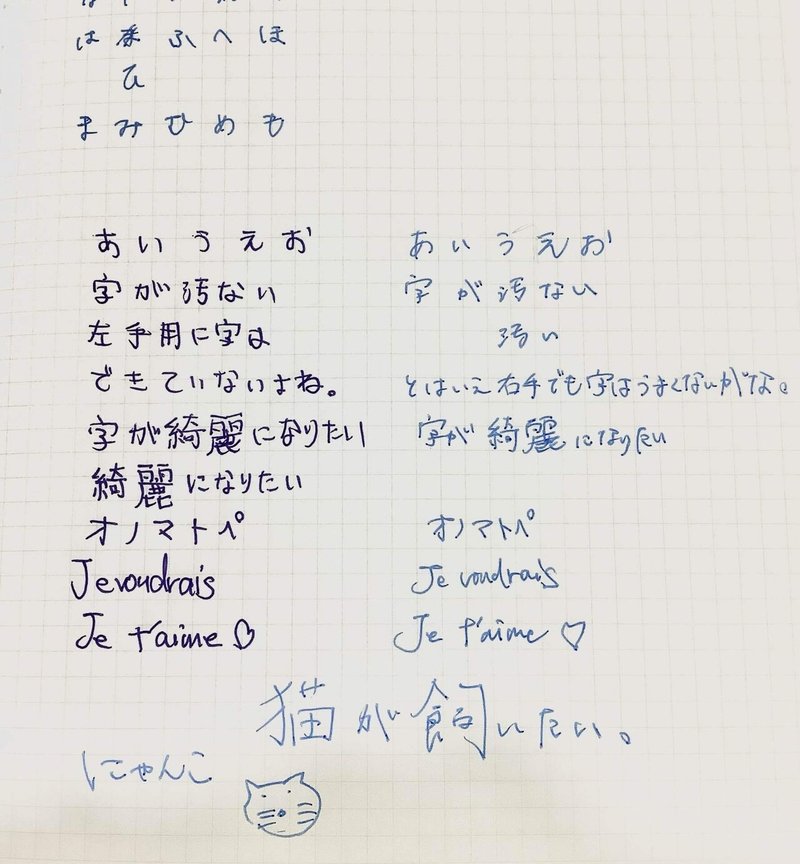 は ふ へ ほ
ひ
ま み む め も
あ い う え お
字が汚ない
左手用に字は
できていないよね。
字が綺麗になりたい
綺麗になりたい
オノマトペ
Je voudrais
Je t'aime ♡
あ い う え お
字が汚ない
汚い
とはいえ右手でも字はうまくないがな。
字が綺麗になりたい
オノマトペ
Je voudrais
Je t'aime ♡
猫が飼いたい。
にゃんこ